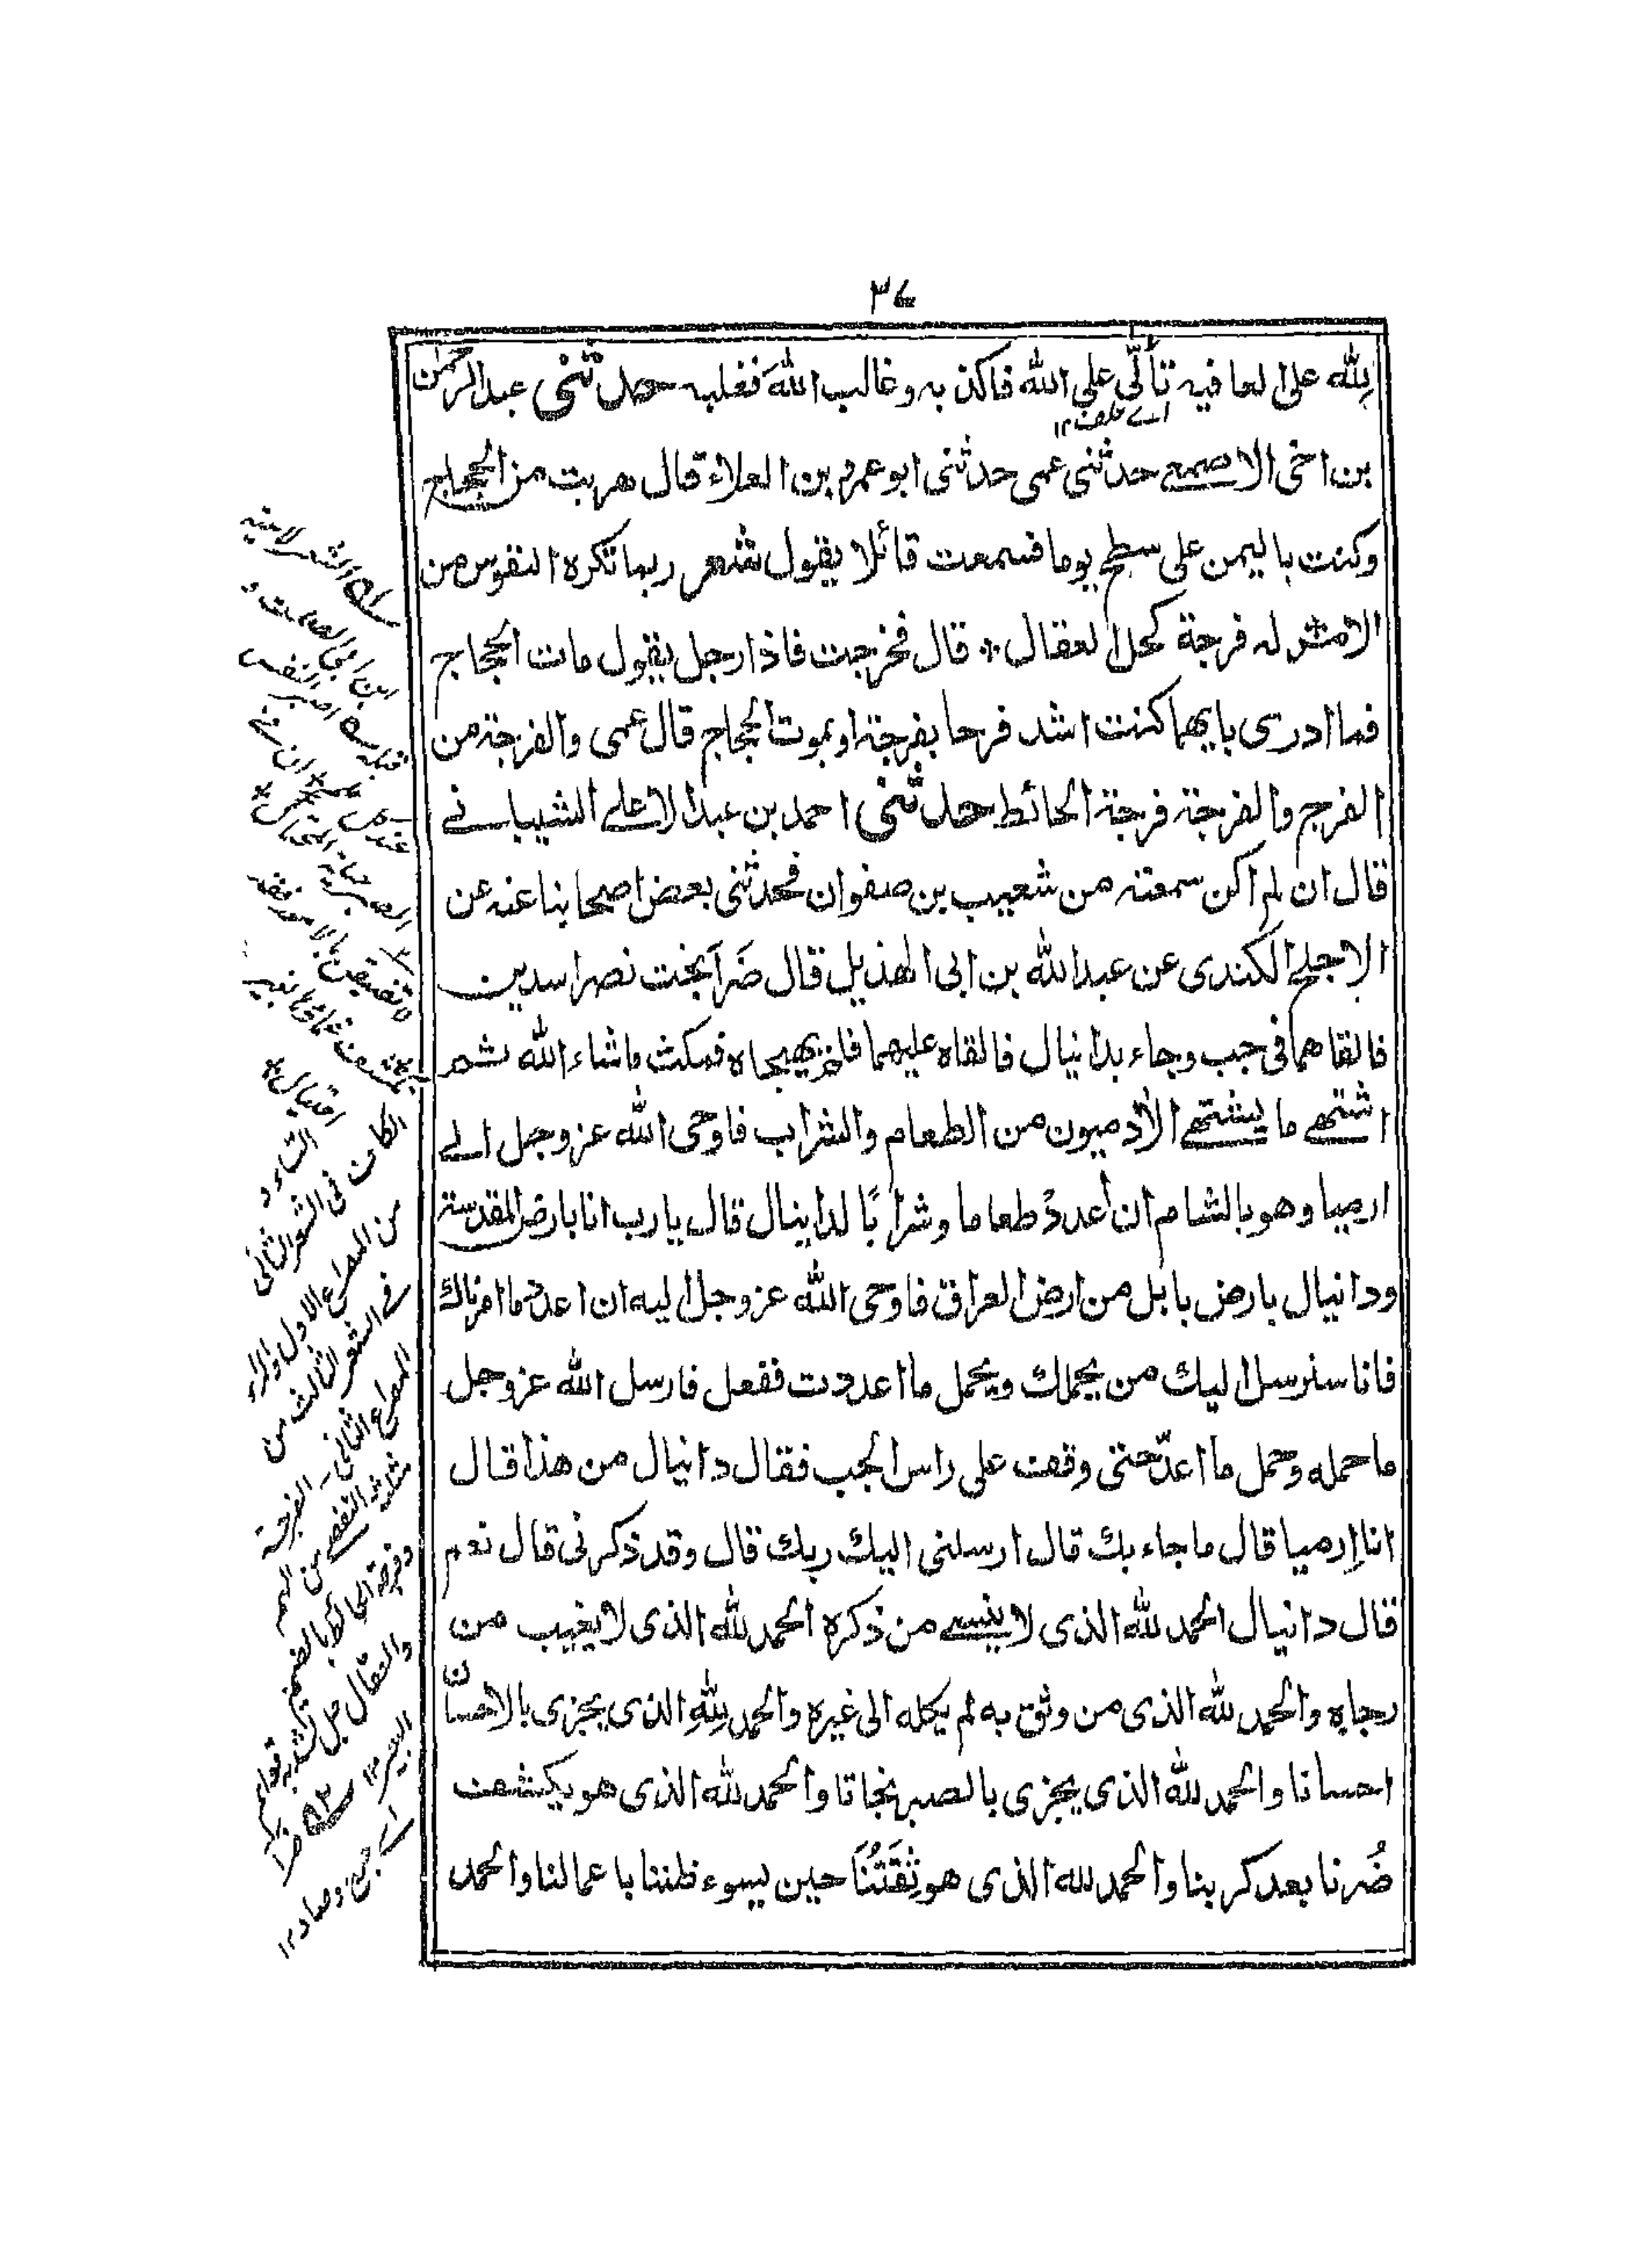 ٣٧
لِلّٰه على العافيه تأَلّٰى علي الله فاكذبه وغالب اللهَ فغلبه حدثنى عبدالرحمٰن
اے حلف١٢
بن اخى الاصمعے حدثنى عمى حدثنى ابو عمرو بن العلاء قال هربت من الحجاج
وكنت باليمن على سطح يوما فسمعت قائلا يقول شعر ربما تكره النفوس من
الامر له فرجة كحل العقال * قال فخرجت فاذا رجل يقول مات الحجاج
فما ادرى بايهما كنت اشد فرحا بفرجة او بموت الحجاج قال عمى والفرجة من
الفرج والفرجة فرجة الحائط حدثنى احمد بن عبد الاعلے الشيبانے
قال ان لم اكن سمعته من شعيب بن صفوان فحدثنى بعض اصحابنا عنه عن
الاجلح الكندى عن عبدالله بن ابى الهذيل قال ضَرَا بخت نصر اسدين
فالقاهما فى جب وجاء بدانيال فالقاه عليهما فلم يهيجاه فمكث ماشاء الله ثم
اشتهے ما يشتهے الأدميون من الطعام والشراب فاوحى الله عز وجل الے
ارميا وهو بالشام ان أعددْ طعاما وشرابًا لدانيال قال يارب انا بارض المقدسة
ودانيال بارض بابل من ارض العراق فاوحى الله عز وجل اليه ان اعدد ما امرناك
فانا سنرسل اليك من يحملك ويحمل ما اعددت ففعل فارسل الله عز وجل
ما حمله وحمل ما اعدّ حتى وقفت على راس الجب فقال دانيال من هذا قال
انا إرميا قال ماجاء بك قال ارسلنى اليك ربك قال وقد ذكرنى قال نعم
قال دانيال الحمد لله الذى لا ينسے من ذكره الحمد لله الذى لا يغيب من
رجاه والحمد لله الذى من وثق به لم يكله الى غيره والحمد لِلّٰهِ الذى يجزى بالاحسان
احسانا والحمد لله الذى يجزى بالصبر نجاتا والحمد لله الذى هو يكشف
ضُرنا بعد كربنا والحمد لله الذى هو ثِقَتُنَا حين يسوء ظننا باعمالنا والحمد
ابن ابى الصلت و
الكاف فى الشعر الثانى
من المصراع الاول والراء
فے الشعر الثالث من
المصراع الثانى - الفرجة
مثلثة التفصے من الهم
وفرجة الحائط بالضم
والعقال حبل تشد به قوائم
البعير ١٢